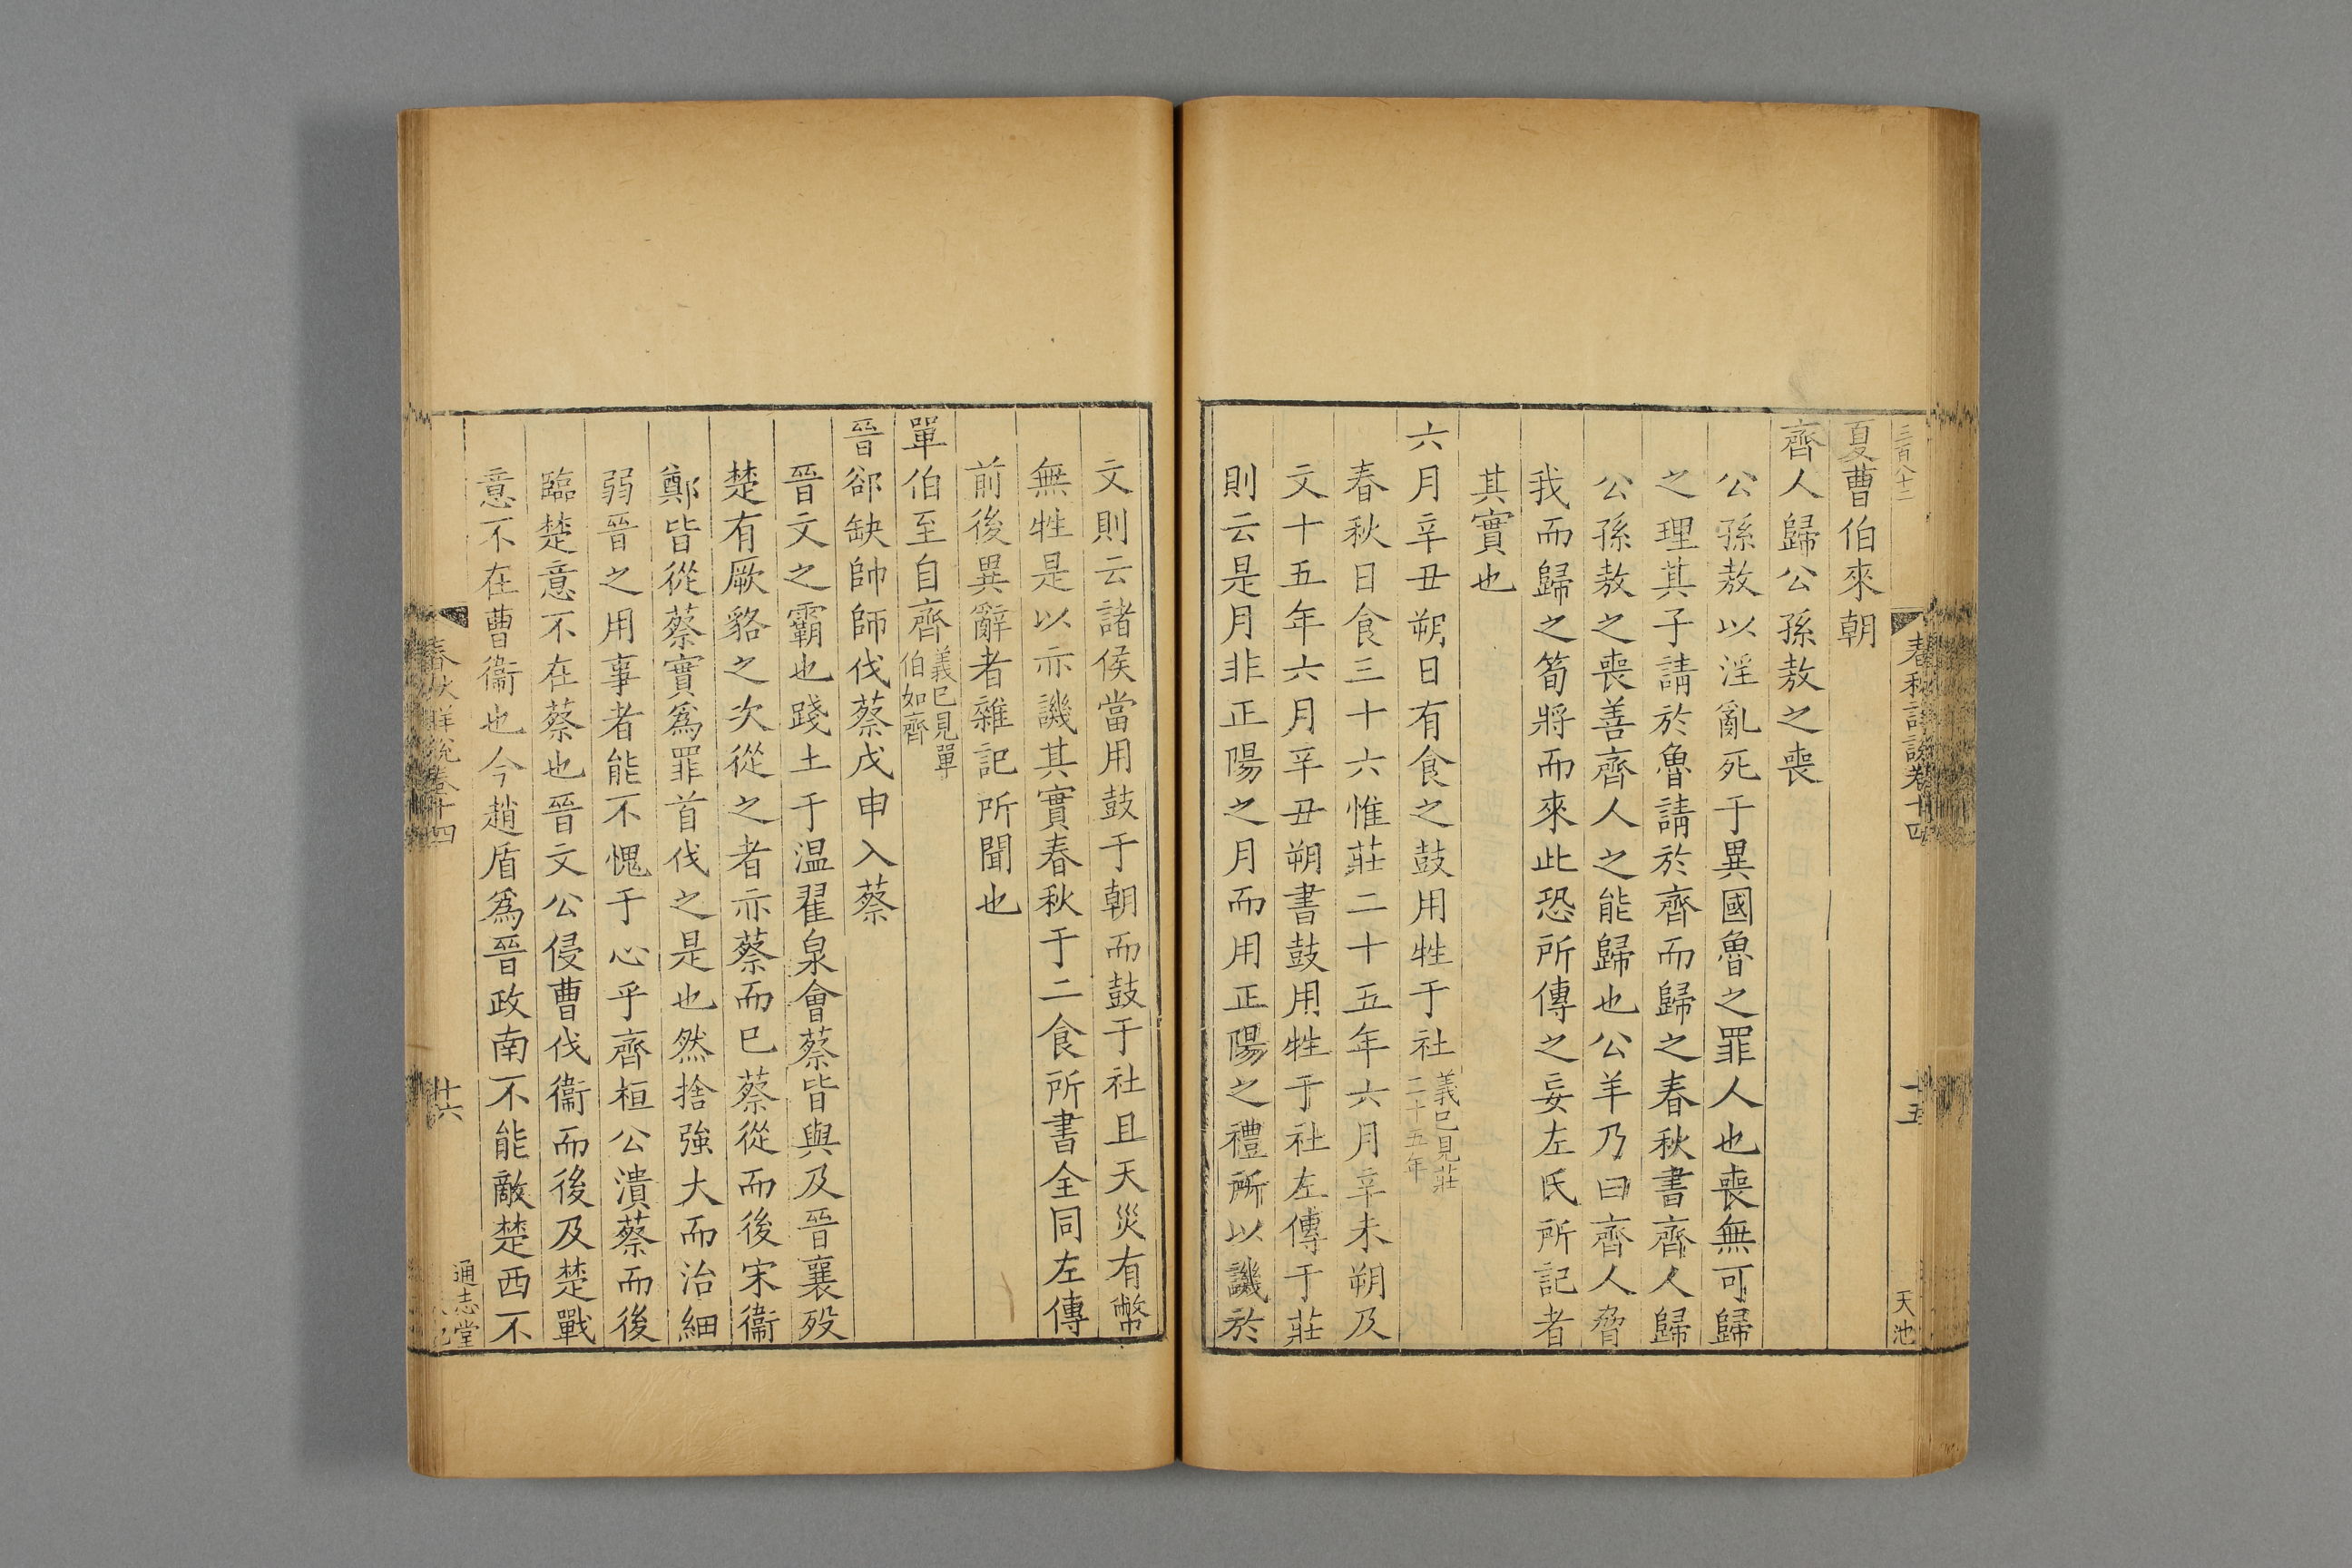 三百八十二
春秋詳說卷十四
十五
天池
夏曹伯來朝
齊人歸公孫敖之喪
公孫敖以淫亂死于異國魯之罪人也喪無可歸
之理其子請於魯請於齊而歸之春秋書齊人歸
公孫敖之喪善齊人之能歸也公羊乃曰齊人脅
我而歸之筍將而來此恐所傳之妄左氏所記者
其實也
六月辛丑朔日有食之鼓用牲于社義已見莊二十五年
春秋日食三十六惟莊二十五年六月辛未朔及
文十五年六月辛丑朔書鼓用牲于社左傳于莊
則云是月非正陽之月而用正陽之禮所以譏於
文則云諸侯當用鼓于朝而鼓于社且天災有幣
無牲是以亦譏其實春秋于二食所書全同左傳
前後異辭者雜記所聞也
單伯至自齊義已見單伯如齊
晉郤缺帥師伐蔡戊申入蔡
晉文之霸也踐土于温翟泉會蔡皆與及晉襄歿
楚有厥貉之次從之者亦蔡而已蔡從而後宋衞
鄭皆從蔡實爲罪首伐之是也然捨強大而治細
弱晉之用事者能不愧于心乎齊桓公潰蔡而後
臨楚意不在蔡也晉文公侵曹伐衞而後及楚戰
意不在曹衞也今趙盾爲晉政南不能敵楚西不
春秋詳說卷十四
十六
通志堂